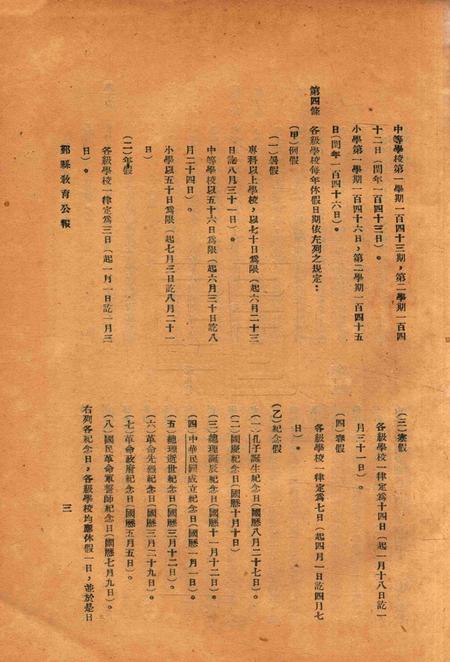 中等學校第一學期一百四十三期,第二學期一百四
十二日(閏年一百四十三日)。
小學第一學期一百四十六日,第二學期一百四十五
日(閏年一百四十六日)。
第四條 各級學校每年休假日期依左列之規定:
(甲)例假
(一)暑假
專科以上學校,以七十日爲限(起六月二十三
日訖八月三十一日)。
中等學校以五十六日爲限(起六月三十日訖八
月二十四日)。
小學以五十日爲限(起七月三日訖八月二十一
日)
(二)年假
各級學校一律定爲三日(起一月一日訖一月三
日)。
鄞縣敎育公報
(三)寒假
各級學校一律定爲十四日(起一月十八日訖一
月三十一日)。
(四)春假
各級學校一律定爲七日(起四月一日訖四月七
日)。
(乙)紀念假
(一)孔子誕生紀念日(國曆八月二十七日)。
(二)國慶紀念日(國曆十月十日)
(三)總理誕辰紀念日(國曆十一月十二日)。
(四)中華民國成立紀念日(國曆一月一日)。
(五)總理逝世紀念日(國曆三月十二日)。
(六)革命先烈紀念日(國曆三月二十九日)。
(七)革命政府紀念日(國曆五月五日)。
(八)國民革命軍誓師紀念日(國曆七月九日)。
右列各紀念日,各級學校均應休假一日,並於是日
三